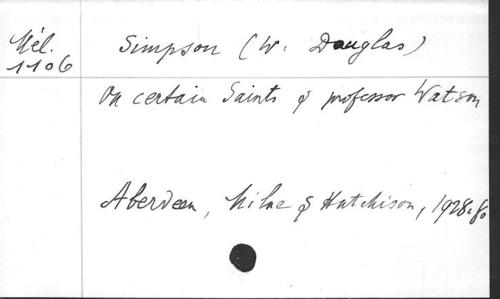 Mél.
1106
Simpson (W. Douglas)
On certain Saints & professor Watson
Aberdeen, Milne & Hutchison, 1928. 8o